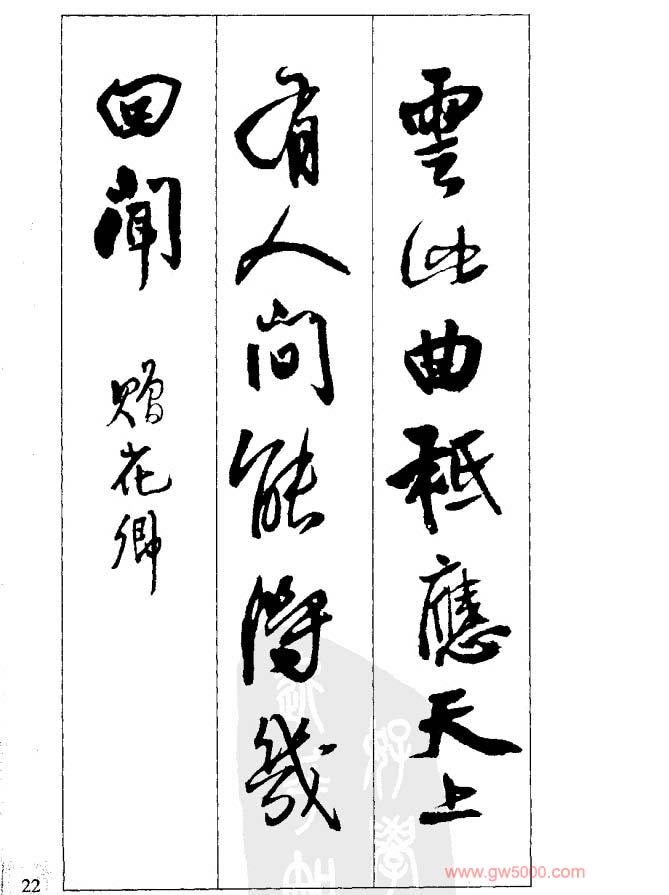 雲此曲秖應天上
有人間能得幾
回聞
贈花卿
22
www.gw5000.com